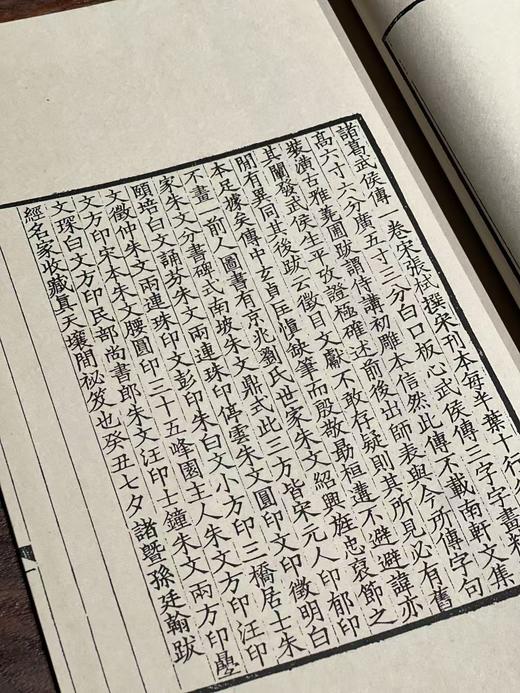 諸葛武侯傳一卷宋張栻撰宋刊本每半葉十行
高六寸六分廣五寸三分白口板心武侯傳三字字畫
裝潢古雅蕘圃跋謂侍講初雕本信然此傳不載南軒文集
其闡發武侯生平攷證極確述前後出師表與今所傳字句
閒有異同其後跋云徵目文獻不敢存疑則其所見必有舊
本足據矣傳中玄貞匡愼缺筆而殷敬勗桓遘不避避諱亦
不畫一前人圖書有京兆劉氏世家朱文紹興旌忠褒節之
家朱文分書碑式南坡朱文鼎式此三方皆宋元人印郁印
頤培白文誦芬朱文兩連珠印停雲朱文圓印文印徵明白
文徵仲朱文兩連珠印文彭印朱白文小方印三橋居士朱
文方印宋本朱文腰圓印三十五峰園主人朱文方印汪印
文琛白文方印民部尚書郎朱文汪印士鐘朱文兩方印曡
經名家收藏眞天壤間秘笈也癸丑七夕 諸曁孫廷翰跋